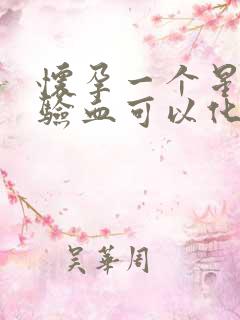 懷孕一个星
驗血可以化
吴華周